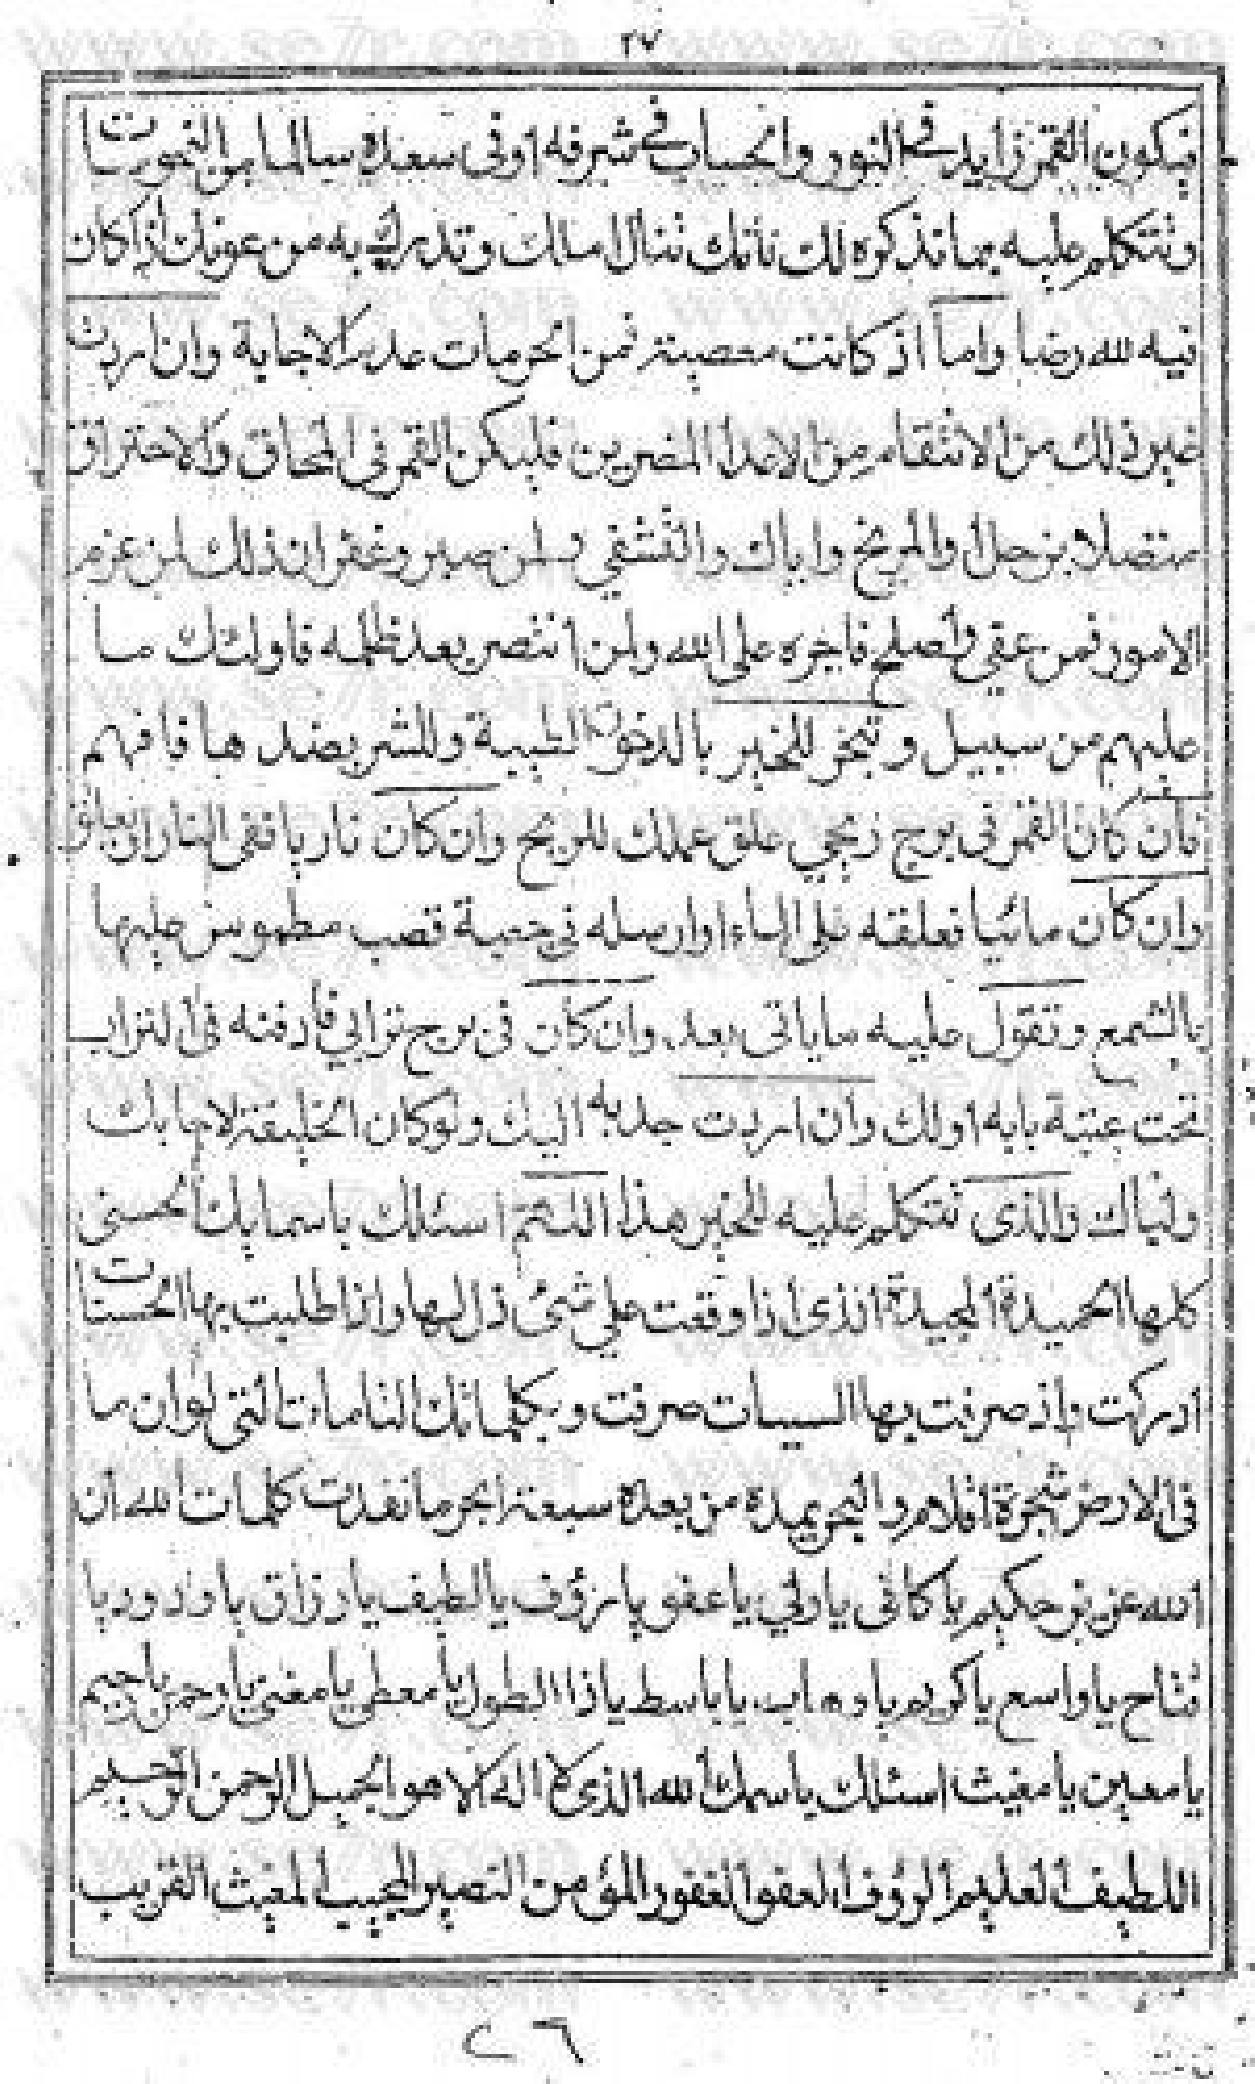 ٢٧
فيكون القمر زايد في النور والحساب في شرفه اوفى سعده سالما من النحوسات
وتتكلم عليه بما نذكره لك فانك تنال امالك وتدرك به من عونك اذا كان
فيه لله رضا واما اذ كانت معصية فمن الحرمات عدم الاجابة وان اردت
غير ذلك من الانتقام من الاعدا المضرين فليكن القمر في المحاق والاحتراق
متصلا بزحل والمريخ واياك والتشفي لمن صبر وغفر ان ذلك لمن عزم
الامور فمن عفي واصلح فاجره على الله ولمن انتصر بعد ظلمه فاولئك ما
عليهم من سبيل وتبخر للخير بالدخون الطيبة وللشر بضدها فافهم
فأن كان القمر في برج ريحي علق عملك للريح وان كان ناريا ففي النار
وان كان مائيا فعلقه على الماء اوارسله في قصبة قصب مطموس عليها
بالشمع وتقول عليه ما ياتى بعد وان كان في برج ترابي فأدفنه في التراب
تحت عتبة بابه اولك وان اردت جلبه اليك ولو كان الخليفة لاجابك
ولباك والذى تتكلم عليه للخير هذا القسم اسئلك باسمائك الحسنى
كلها الحميدة المجيدة الذى اذا وقعت على شئ ذل لها واذا طلبت بها الحسنات
ادركت واذ صرفت بها السيات صرفت وبكلماتك التامات التى لوان ما
في الارض شجرة اقلام والبحر يمده من بعده سبعة ابحر ما نفدت كلمات الله ان
الله عزيز حكيم يا كافى يا ولي يا عفو يا رؤف يا لطيف يا رزاق يا ودود يا
فتاح يا واسع يا كريم يا وهاب يا باسط يا ذا الطول يا معطى يا مغنى يا رحمن يا رحيم
يا معين يا مغيث اسئلك باسمك الله الذى لا اله الا هو الجميل الرحمن الرحيم
اللطيف العليم الرؤف العفو الغفور المؤمن النصير المجيب المغيث القريب
٢٦